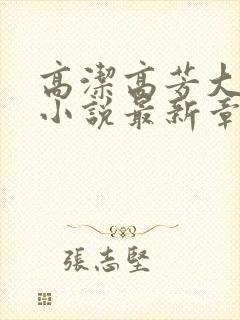 高潔高芳大
小說最新章
張志堅